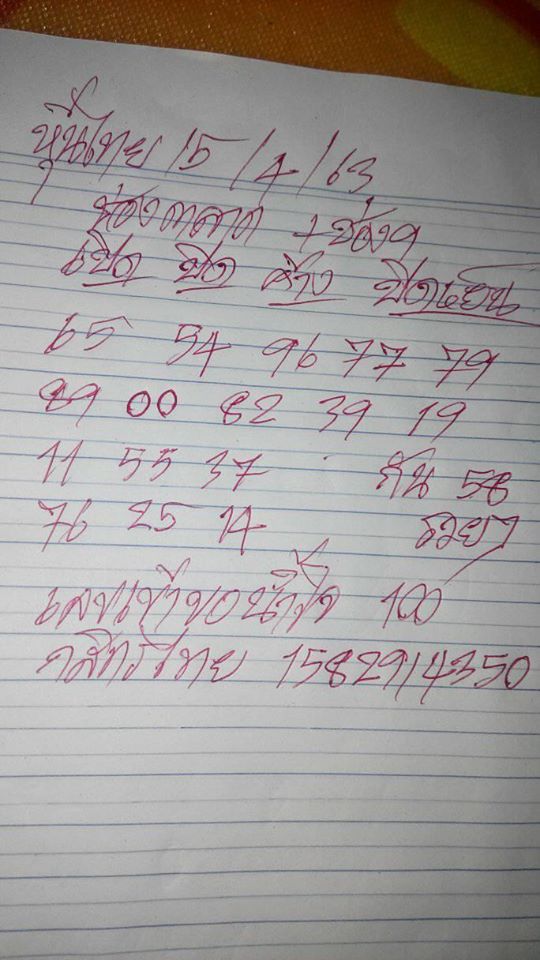 หุ้นไทย 15/4/63
ช่อง +ช่อง9
เปิด ปิด ค้าง ปิดเย็น
65 54 96 77 79
89 00 82 39 19
11 55 37 กัน 58
76 25 14 รวยๆ
เลขเข้าขอน้ำใจ 100
กสิกรไทย 1582914350